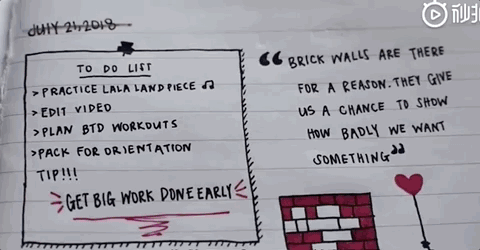 JULY 21, 2018
TO DO LIST
>PRACTICE LALA LAND PIECE ♫
>EDIT VIDEO
>PLAN BTD WORKOUTS
>PACK FOR ORIENTATION
TIP!!!
GET BIG WORK DONE EARLY
“BRICK WALLS ARE THERE
FOR A REASON. THEY GIVE
US A CHANCE TO SHOW
HOW BADLY WE WANT
SOMETHING”